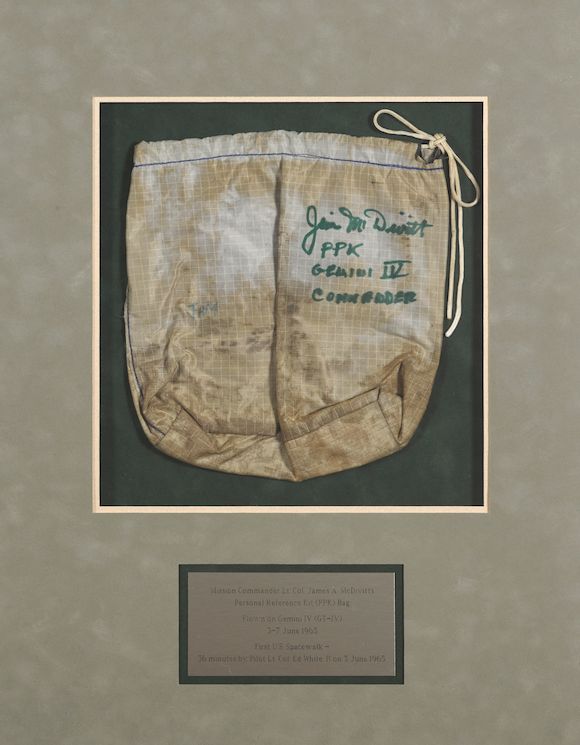 Jim McDivitt
PPK
GEMINI IV
COMMANDER
Mission Commander Lt. Col. James A. McDivitt's
Personal Reference Kit (PPK) Bag
Flown on Gemini IV (GT-IV)
3-7 June 1965
First U.S. Spacewalk –
36 minutes by Pilot Lt. Col. Ed White, II on 3 June 1965